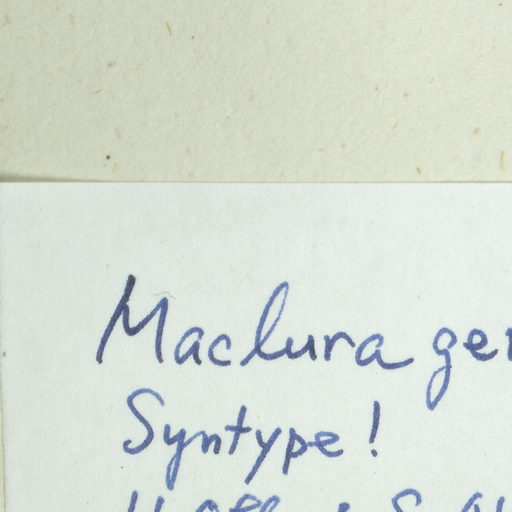 Maclura ger
Syntype!